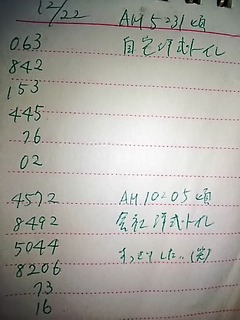 12/22
AM5:31頃
0.63 自宅洋式トイレ
842
153
445
76
02
457.2 AM10:05頃
8492 会社洋式トイレ
5044 すっきりした..(笑)
8206
73
16